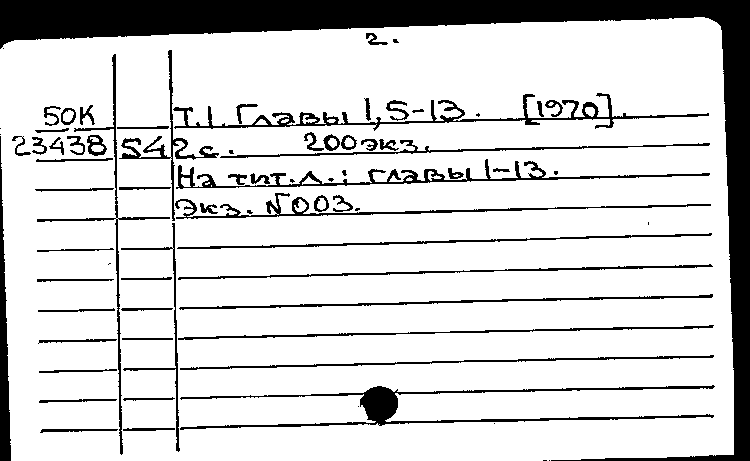 2.
50К Т.1. Главы 1,5-13. [1970].
23438 542с. 200экз.
На тит.л.: главы 1-13.
Экз. №003.